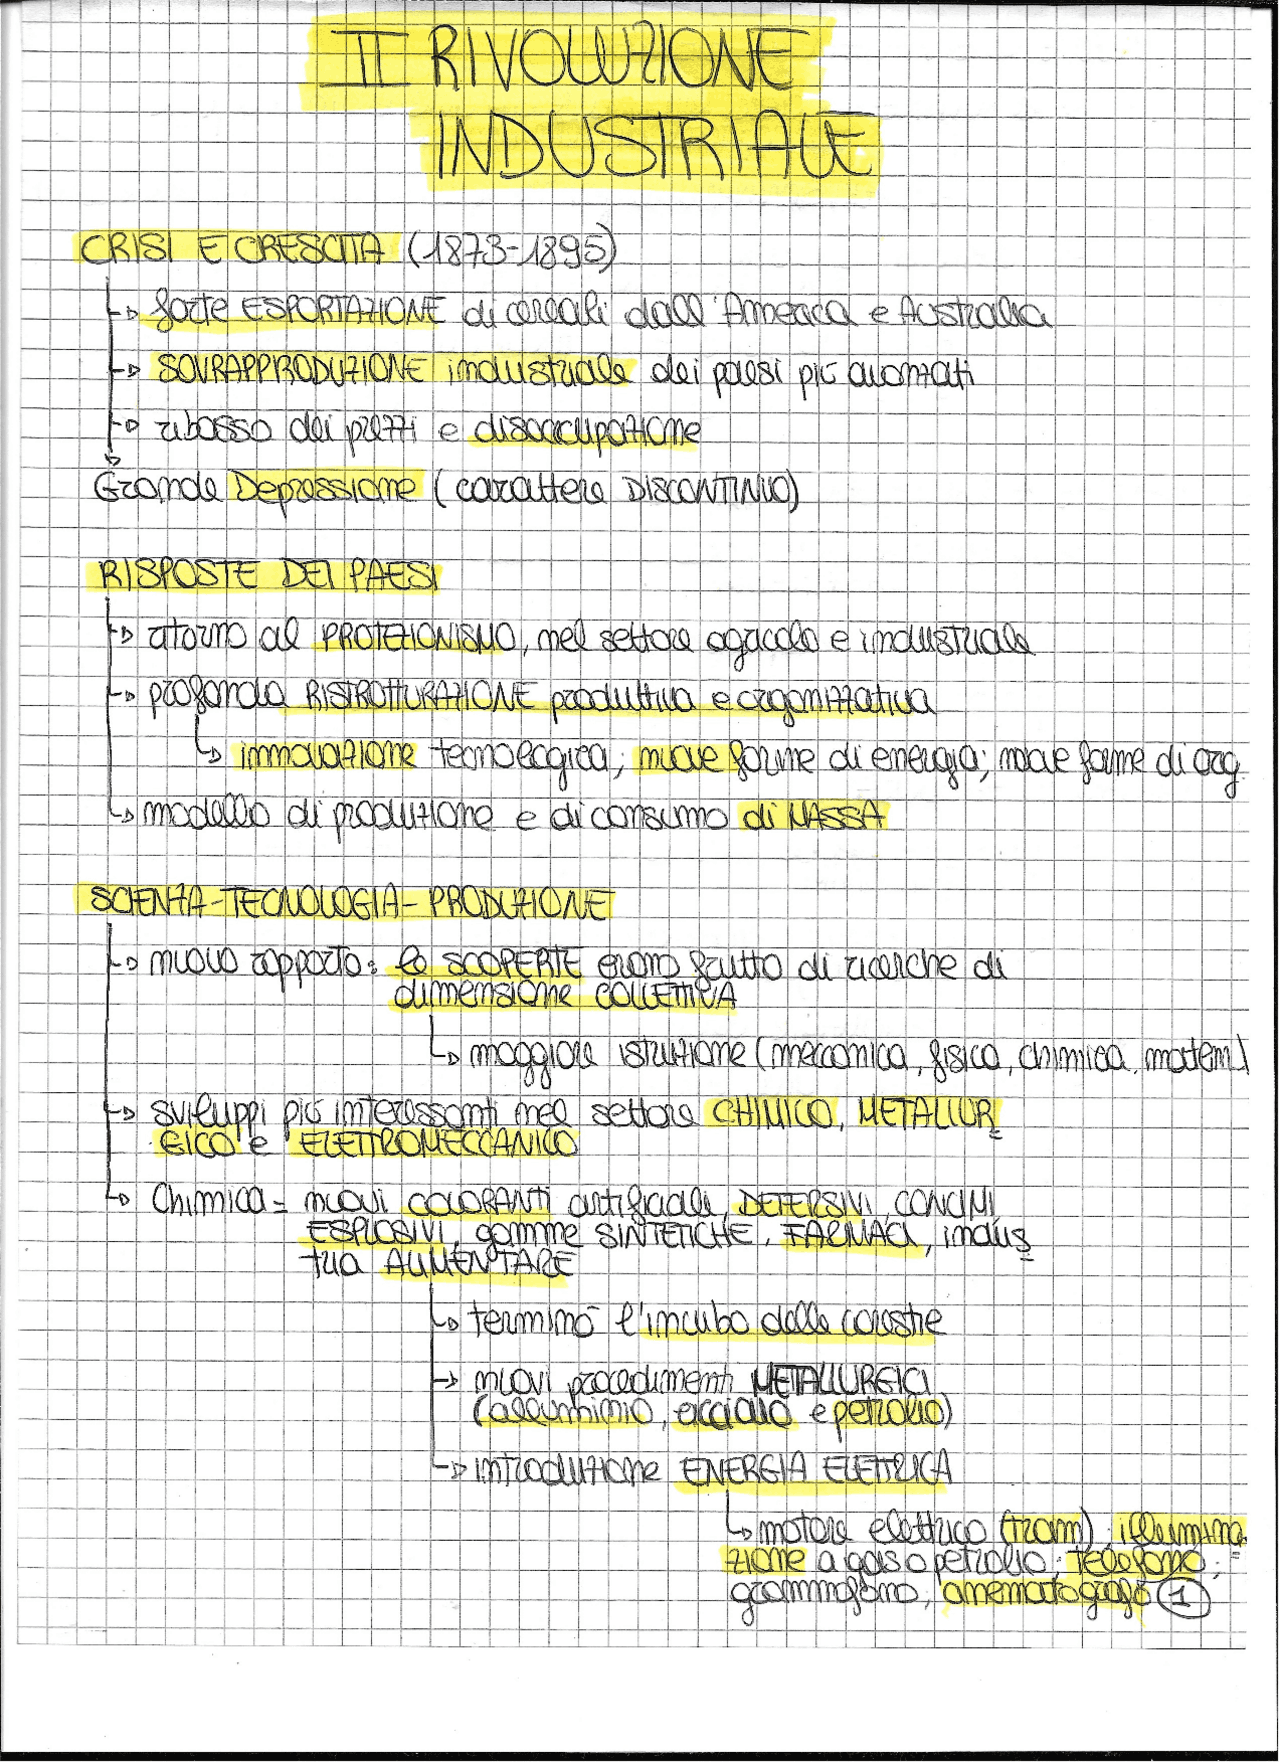 II RIVOLUZIONE
INDUSTRIALE
CRISI E CRESCITA (1873-1895)
forte ESPORTAZIONE di cereali dall'America e Australia
SOVRAPPRODUZIONE industriale dei paesi più avanzati
ribasso dei prezzi e disoccupazione
Grande Depressione (carattere DISCONTINUO)
RISPOSTE DEI PAESI
ritorno al PROTEZIONISMO, nel settore agricolo e industriale
profonda RISTRUTTURAZIONE produttiva e organizzativa
innovazione tecnologica; nuove forme di energia; nuove forme di org.
modello di produzione e di consumo di MASSA
SCIENZA-TECNOLOGIA-PRODUZIONE
nuovo rapporto: le SCOPERTE erano frutto di ricerche di
dimensione COLLETTIVA
maggiore istruzione (meccanica, fisica, chimica, matem.)
sviluppi più interessanti nel settore CHIMICO, METALLUR
GICO e ELETTROMECCANICO
Chimica = nuovi COLORANTI artificiali, DETERSIVI, CONCIMI,
ESPLOSIVI, gomme SINTETICHE, FARMACI, indus
tria ALIMENTARE
terminò l'incubo delle carestie
nuovi procedimenti METALLURGICI
(alluminio, acciaio e petrolio)
introduzione ENERGIA ELETTRICA
motore elettrico (tram); illumina
zione a gas o petrolio; telefono;
grammofono, cinematografo 1